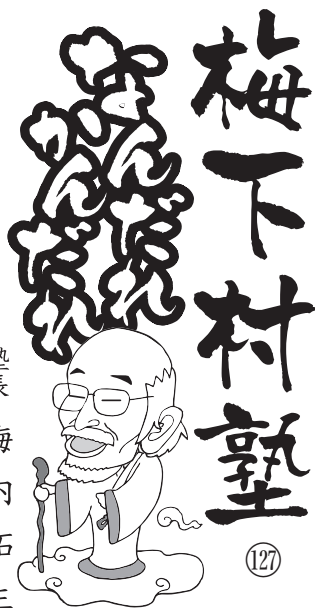 梅下村塾
127
なんだれ
かんだれ
塾長 梅内拓生